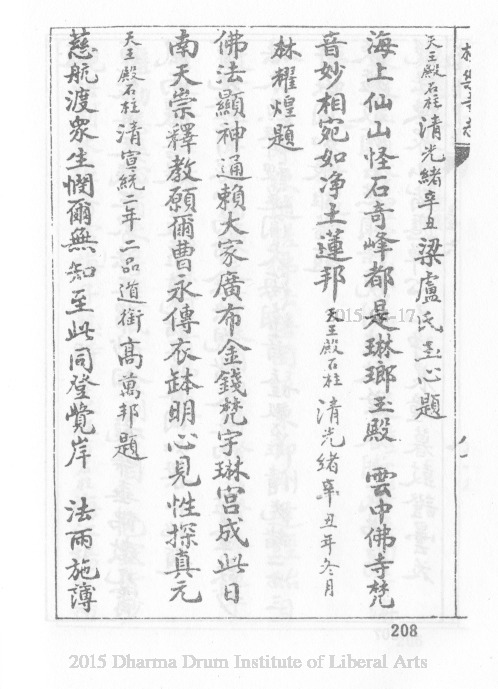 極樂寺志
天王殿石柱 清光緒辛丑 梁盧氏立心題
海上仙山怪石奇峰都是琳瑯玉殿 雲中佛寺梵
音妙相宛如净土蓮邦 天王殿石柱 清光緒辛丑年冬月
林耀煌題
佛法顯神通賴大家廣布金錢梵宇琳宮成此日
南天崇釋教願爾曹永傳衣缽明心見性探真元
天王殿石柱 清宣統二年二品道銜髙萬邦題
慈航渡衆生憫爾無知至此同登覺岸 法雨施薄
208
2015-
-17
2015 Dharma Drum Institute of Liberal Arts